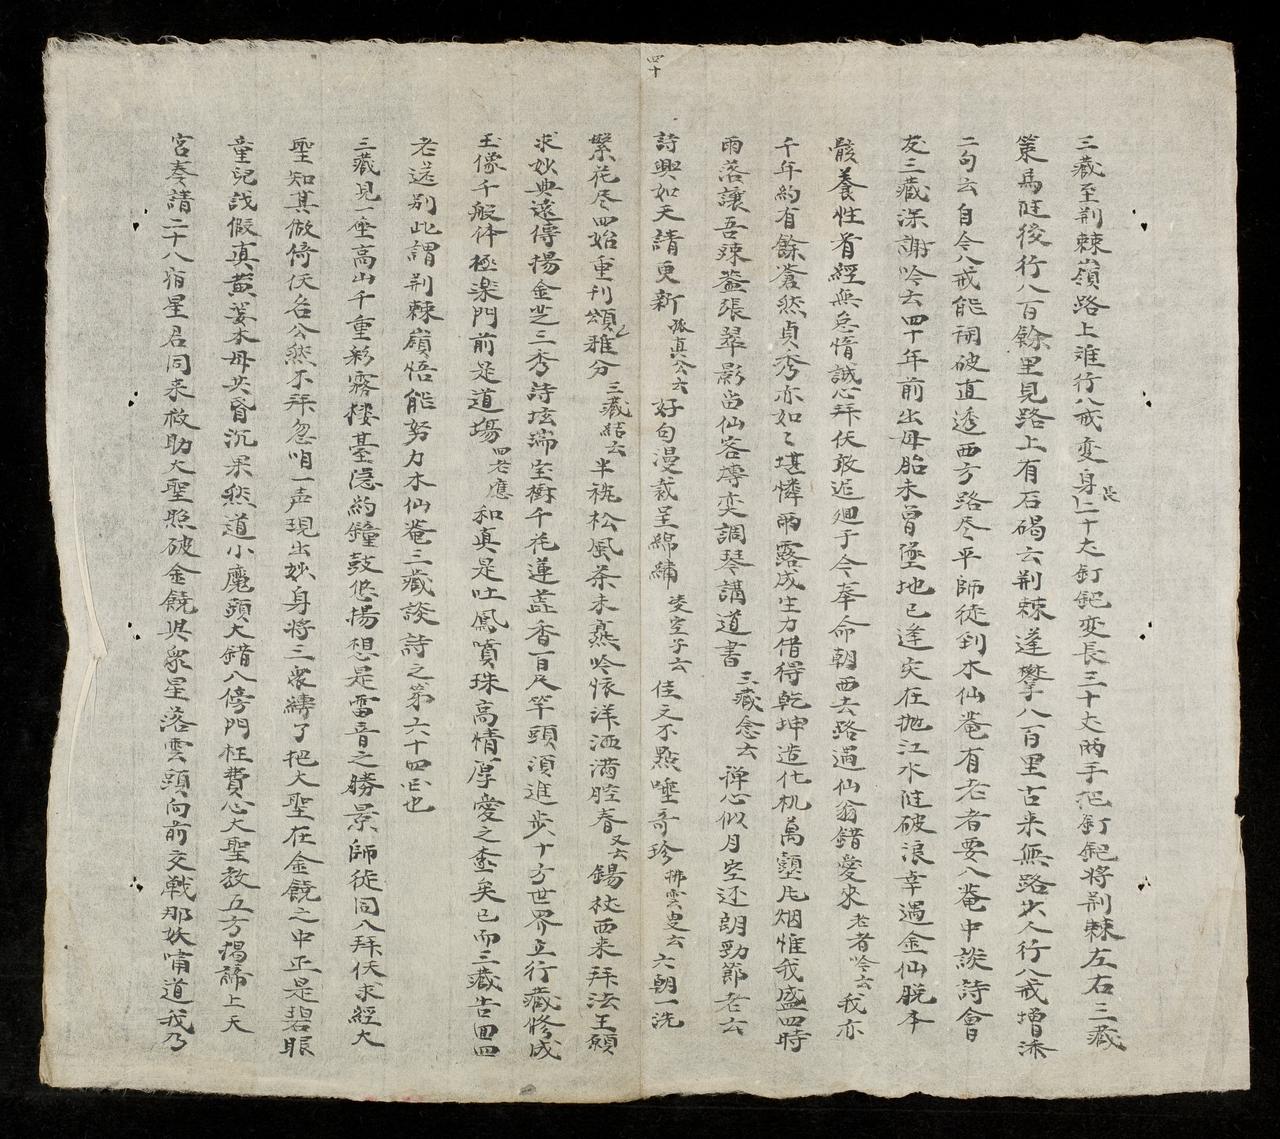 四十
三藏至荆棘嶺路上难行八戒变身長二十丈釘鈀变長三十丈両手把釘鈀将荆棘左右三藏
策馬随後行八百餘里見路上有石碣云荆棘蓬攀八百里古来無路少人行八戒增添
二句云自今八戒能開破直透西方路尽平師徒到木仙菴有老者要入菴中談詩會
友三藏深謝吟云四十年前出母胎未曾墮地已逢灾在抛江水随破浪幸遇金仙脱本
骸養性看經無怠惰誠心拜伏敢迟廻于今奉命朝西去路遇仙翁錯愛來老者吟云我亦
千年約有餘蒼然貞秀亦如々堪憐雨露成生力借得乾坤造化机萬壑凡烟惟我盛四時
雨落讓吾疎盖張翠影留仙客博奕調琴講道書三藏念云禅心似月空还朗勁節老云
詩興如天請更新孤真公云好句漫裁呈綿繡凌空子云佳文不點唾奇珍拂雲叟云六朝一洗
繁花尽四始重刊頌雅分三藏結云半枕松風茶未熹吟懐洋洒満腔春又云錫杖西来拜法王願
求妙典遠傳揚金芝三秀詩坛瑞宝樹千花蓮蕋香百尺竿頭須進步十方世界立行藏修成
玉像千般体極楽門前是道場四老應和真是吐鳳噴珠高情厚愛之壺矣已而三藏告囬四
老送别此謂荆棘嶺悟能努力木仙菴三藏談詩之第六十四囬也
三藏見一座高山千重彩霧楼基隐約鐘鼓悠揚想是雷音之勝景師徒同入拜伏求經大
聖知其做倚伏名公然不拜忽咱一声現出妙身将三衆縛了把大聖在金鐃之中正是碧眼
童兒識假真黄婆木母共昏沉果然道小魔頭大錯入傍門枉費心大聖教五方揭諦上天
宫奏請二十八宿星君同来救助大聖照破金鐃與衆星落雲頭向前交戦那妖嘯道我乃